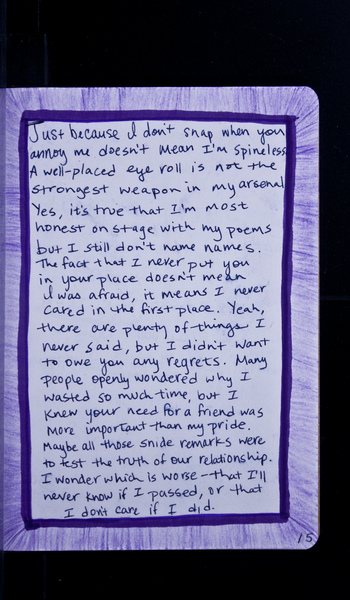 Just because I don't snap when you
annoy me doesn't mean I'm spineless
A well-placed eye roll is not the
strongest weapon in my arsenal
Yes, it's true that I'm most
honest on stage with my poems
but I still don't name names.
The fact that I never put you
in your place doesn't mean
I was afraid, it means I never
cared in the first place. Yeah,
there are plenty of things I
never said, but I didn't want
to owe you any regrets. Many
people openly wondered why I
wasted so much time, but I
knew your need for a friend was
more important than my pride.
Maybe all those snide remarks were
to test the truth of our relationship.
I wonder which is worse - that I'll
never know if I passed, or that
I don't care if I did.
15